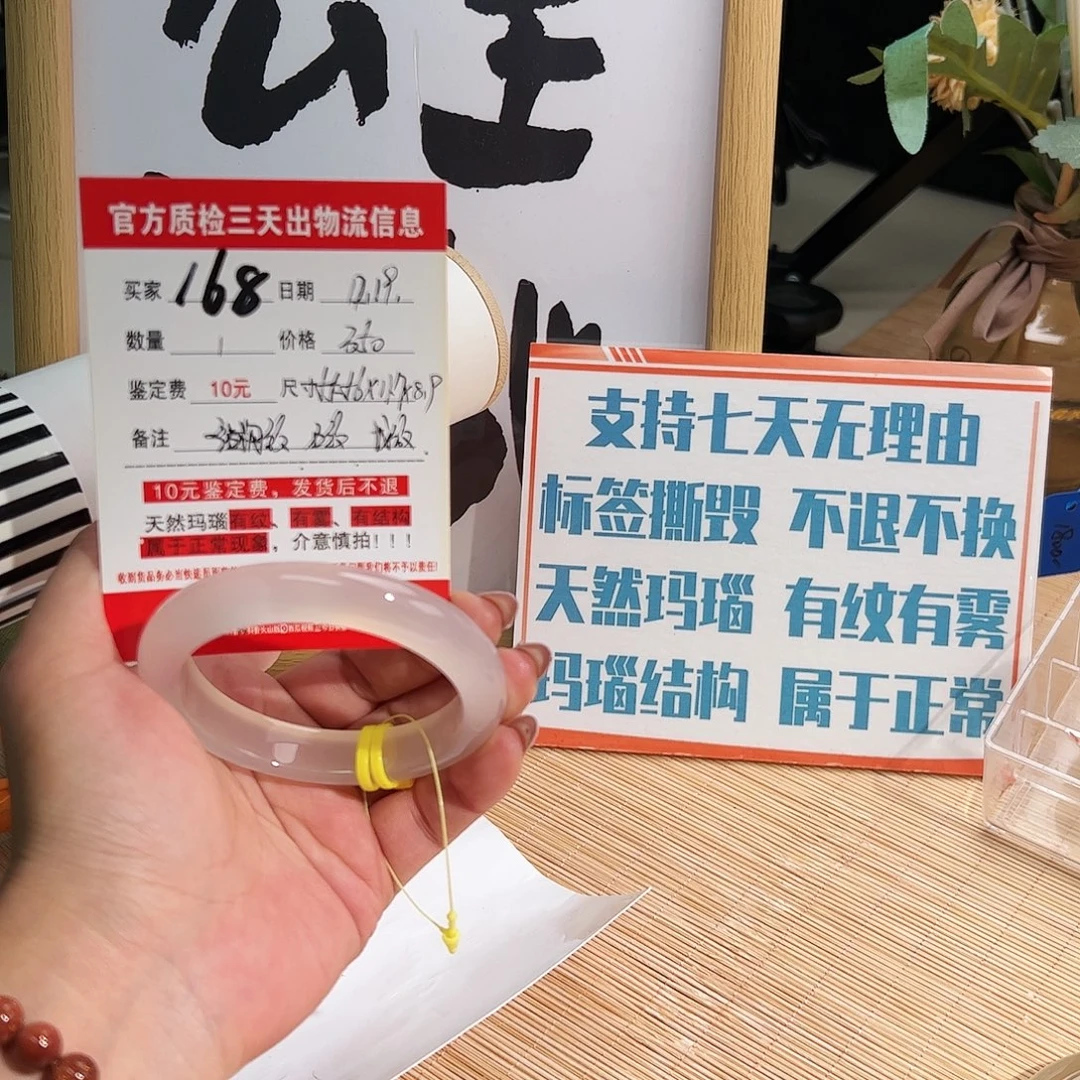 官方质检三天出物流信息
买家 168 日期 12.19.
数量 1 价格
鉴定费 10元 尺寸
备注
10元鉴定费，发货后不退
天然玛瑙有纹、有雾、有结构
属于正常现象，介意慎拍！！！
支持七天无理由
标签撕毁 不退不换
天然玛瑙 有纹有雾
玛瑙结构 属于正常